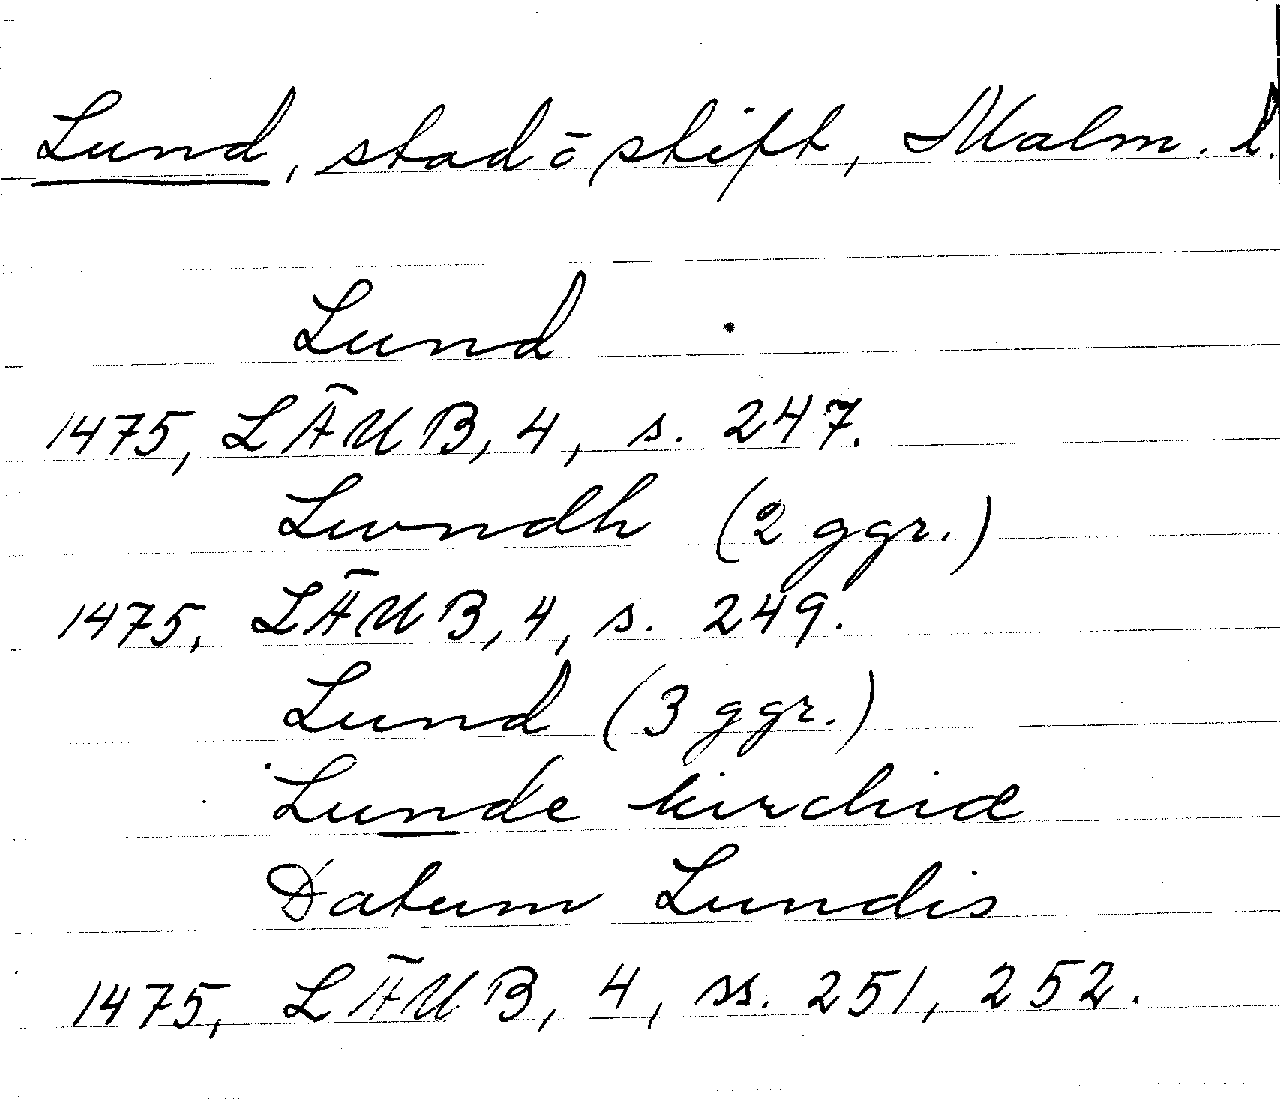 Lund, stad o stift, Malm. l.
Lund
1475, LÄUB, 4, s. 247.
Lwndh (2 ggr.)
1475, LÄUB, 4, s. 249.
Lund (3 ggr.)
Lunde kirchiæ
Datum Lundis
1475, LÄUB, 4, ss. 251, 252.